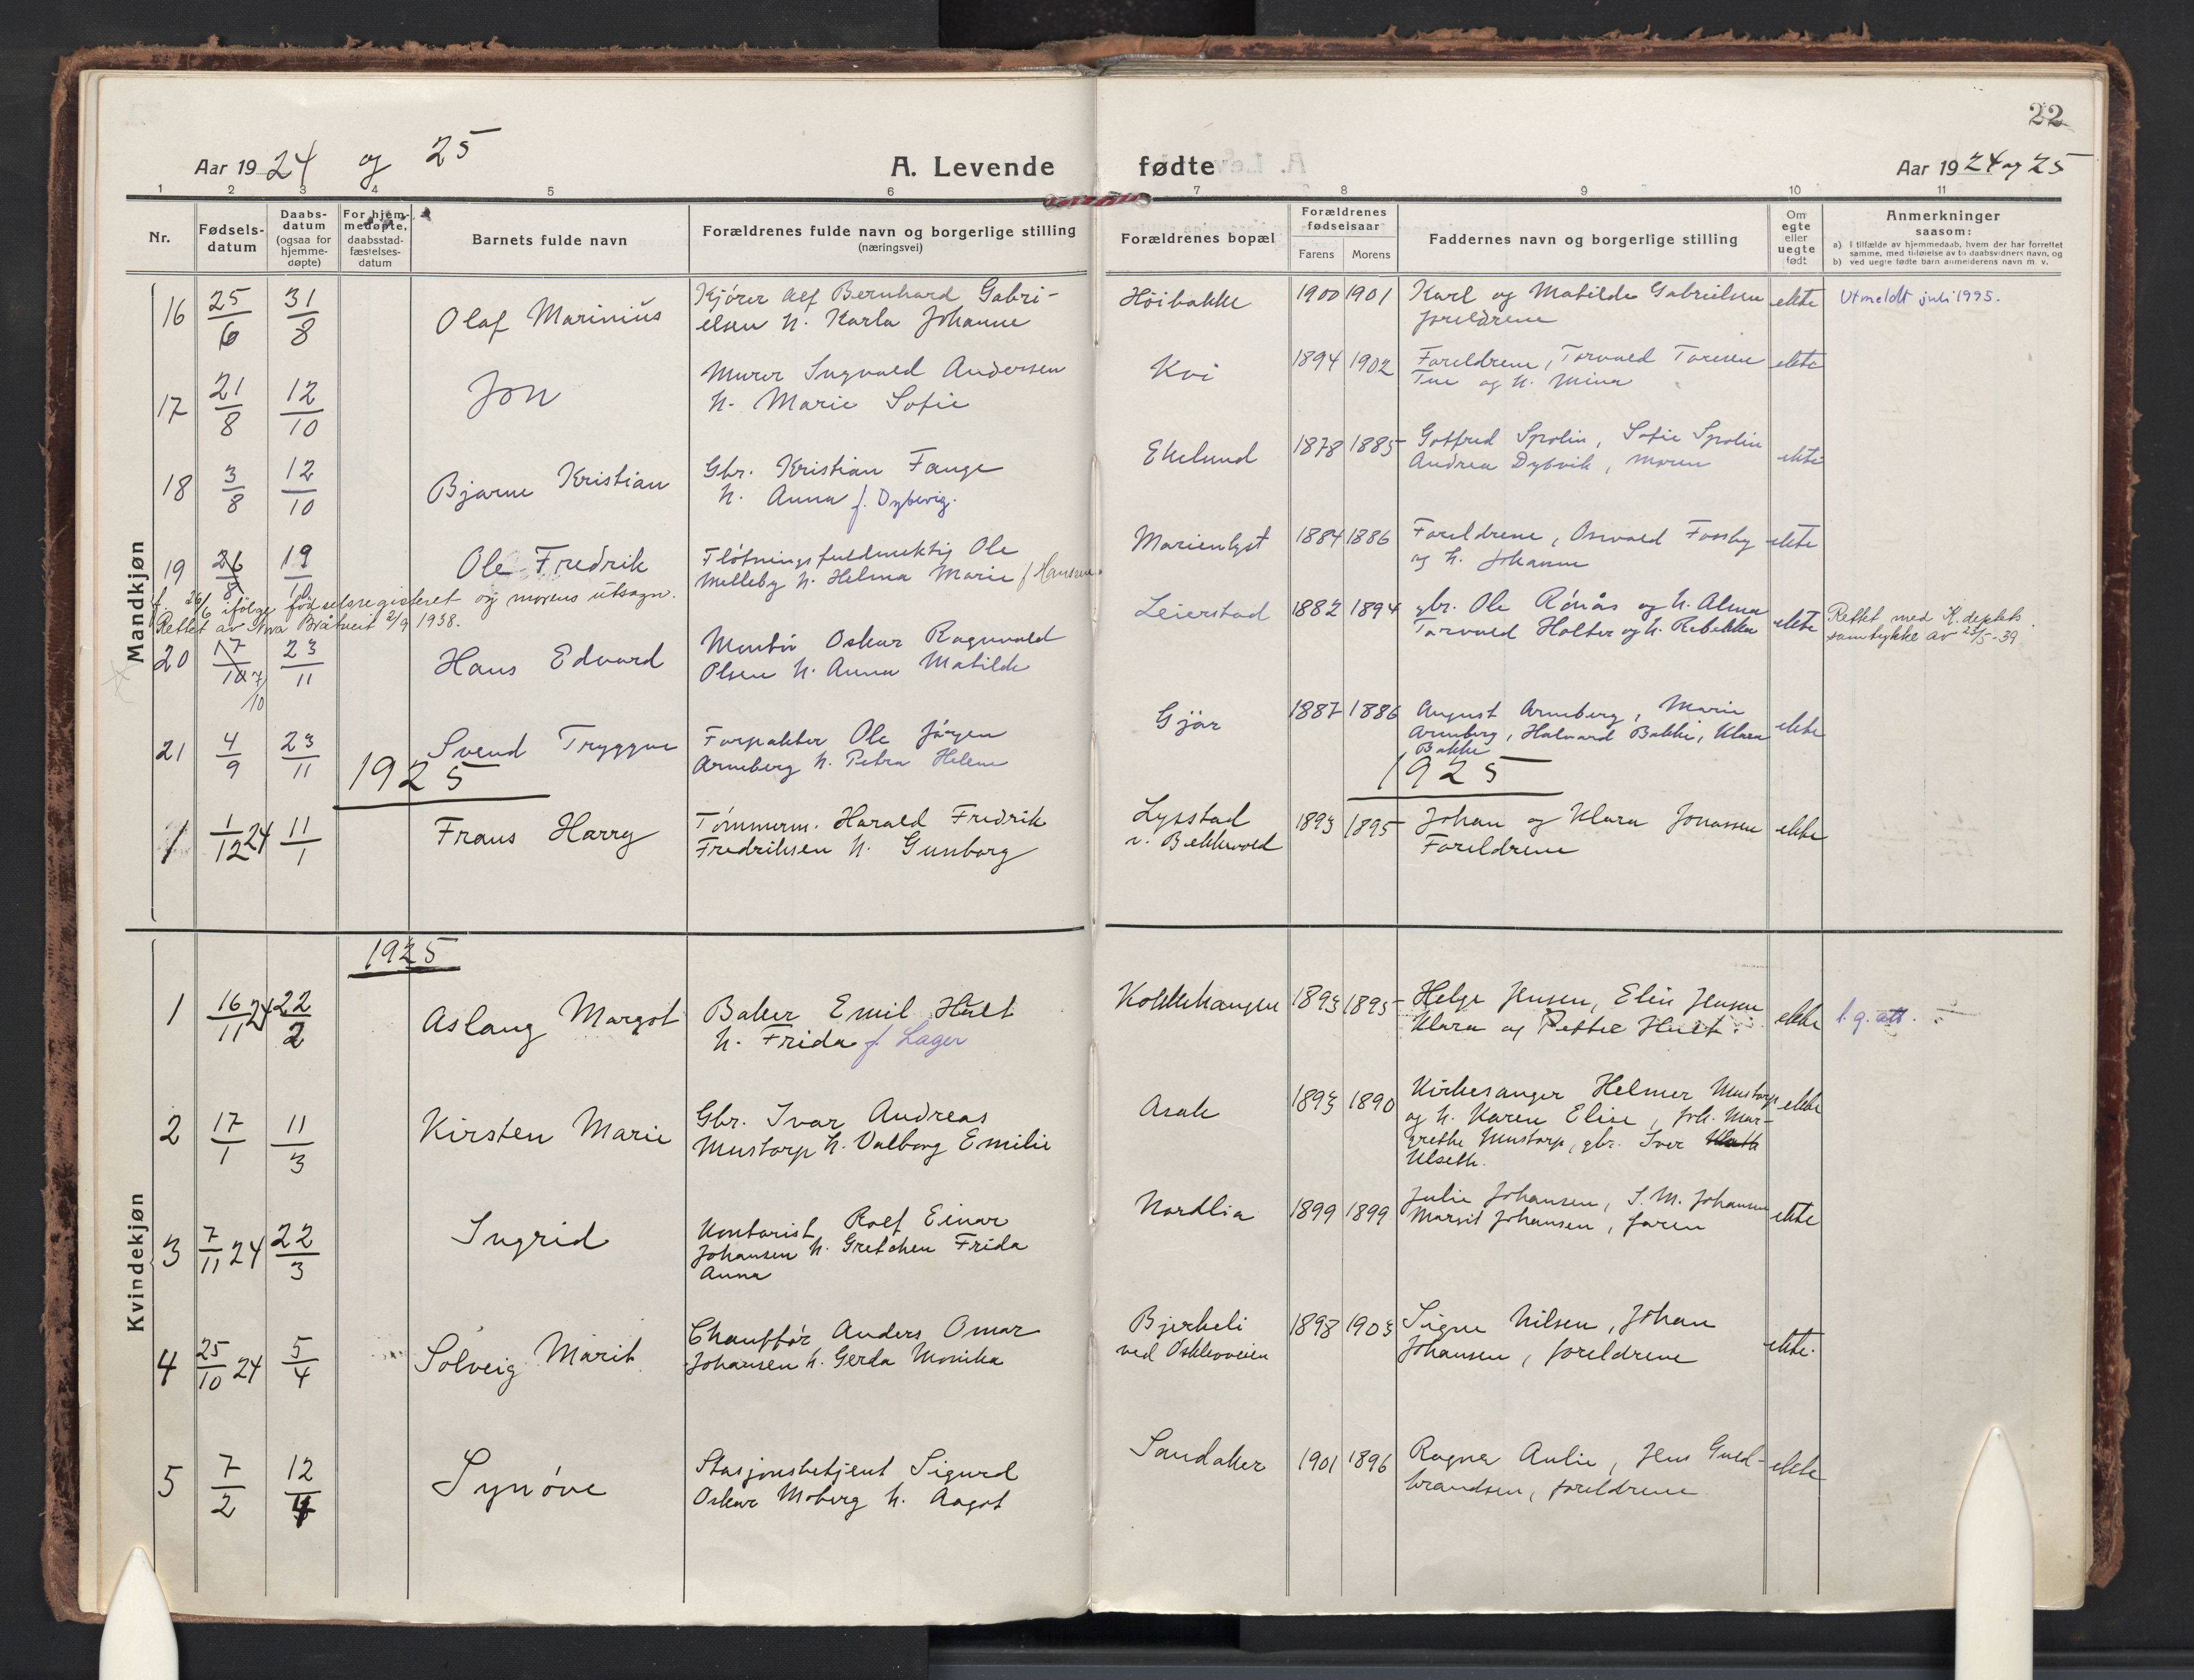 22
Aar 1924 og 25
A. Levende fødte
Aar 1924 og 25
1 2 3 4 5 6 7 8 9 10 11
Nr.
Fødsels-
datum
Daabs-
datum
(ogsaa for
hjemme-
døpte)
For hjem-
medøpte,
daabsstad-
fæstelses-
datum
Barnets fulde navn
Forældrenes fulde navn og borgerlige stilling
(næringsvei)
Forældrenes bopæl
Forældrenes
fødselsaar
Farens Morens
Faddernes navn og borgerlige stilling
Om
egte
eller
uegte
født
Anmerkninger
saasom:
a) I tilfælde av hjemmedaab, hvem der har forrettet
samme, med tilføielse av to daabsvidners navn, og
b) ved uegte fødte barn anmelderens navn m. v.
Mandkjøn
16 25/6 31/8 Olaf Marinius
Kjører Alf Bernhard Gabri-
elsen h. Karla Johanne
Høibakke 1900 1901
Karl og Matilde Gabrielsen
foreldrene
ekte
Utmeldt juli 1995.
17 21/8 12/10 Jon
Murer Ingvald Andersen
h. Marie Sofie
Kvi 1894 1902
Foreldrene, Torvald Toresen
Tue og h. Mina
ekte
18 3/8 12/10 Bjarne Kristian
Gbr. Kristian Fange
h. Anna f. Dybevig.
Ekelund 1878 1885
Gotfred Spolin, Sofie Spolin
Andrea Dybvik, moren
ekte
19 26/8 19/10 Ole Fredrik
Fløtningsfuldmektig Ole
Melleby h. Helma Marie f. Hansen.
Marienlyst 1884 1886
Foreldrene, Osvald Fossby
og h. Johanne
ekte
f. 26/6 ifølge fødselsregisteret og morens utsagn.
Rettet av Bråtveit 2/9 1938.
20 17/10 7/10 23/11 Hans Edvard
Montør Oskar Ragnvald
Olsen h. Anna Matilde
Leierstad 1882 1894
gbr. Ole Rønås og h. Alma
Torvald Holter og h. Rebekka
ekte
Rettet med K. deptets
samtykke av 23/5-39
21 4/9 23/11 Svend Tryggve
Forpakter Ole Jørgen
Arneberg h. Petra Helene
Gjør 1887 1886
August Arneberg, Marie
Arneberg, Halvard Bakke, Klara
Bakke
ekte
1925
1925
1 1/12 24 11/1 Frans Harry
Tømmerm. Harald Fredrik
Fredriksen h. Gunborg
Lysstad
v. Bekkevold
1893 1895
Johan og Klara Jonassen
Foreldrene
ekte
Kvindekjøn
1925
1 16/11 24 22/2 Aslaug Margot
Baker Emil Hult
h. Frida f. Lager
Kokkehaugen 1893 1895
Helge Jensen, Elin Jensen
Klara og Petter Hult.
ekte
l. g. att.
2 17/1 11/3 Kirsten Marie
Gbr. Ivar Andreas
Mustorp h. Valborg Emilie
Asak 1893 1890
Kirkesanger Helmer Mustorp
og h. Karen Elise, frk. Mar-
grethe Mustorp, gbr. Iver
Ulseth.
ekte
3 7/11 24 22/3 Ingrid
Kontorist Rolf Einar
Johansen h. Gretchen Frida
Anna
Nordlia 1899 1899
Julie Johansen, S. M. Johansen
Margit Johansen, faren
ekte
4 25/10 24 5/4 Solveig Marit
Chauffør Anders Omar
Johansen h. Gerda Monika
Bjerkeli
ved Oskleveien
1898 1903
Signe Nilsen, Johan
Johansen, foreldrene
ekte.
5 7/2 12/4 Synøve
Stasjonsbetjent Sigurd
Oskar Moberg h. Aagot
Sandaker 1901 1896
Ragna Aulie, Jens Guld-
brandsen, foreldrene
ekte